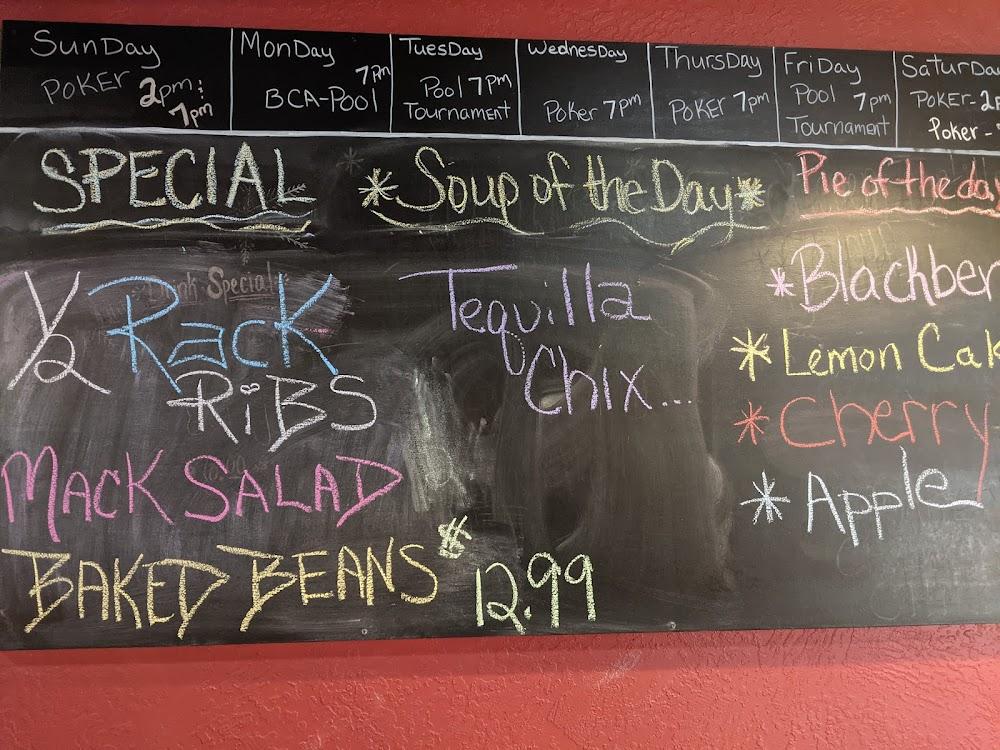 SunDay
POKER 2pm :
7pm
MonDay
7pm
BCA-POOl
TuesDay
Pool 7pm
Tournament
WednesDay
Poker 7pm
ThursDay
POKER 7pm
FriDay
Pool 7pm
Tournament
SaturDa
POKER-2p
Poker -
SPECIAL
½ Rack
RiBS
MACK SALAD
BAKED BEANS $
12.99
*Soup of the Day*
Tequilla
Chix...
Pie of the day
*Blackber
*Lemon Cak
*Cherry
*Apple
Drink Special